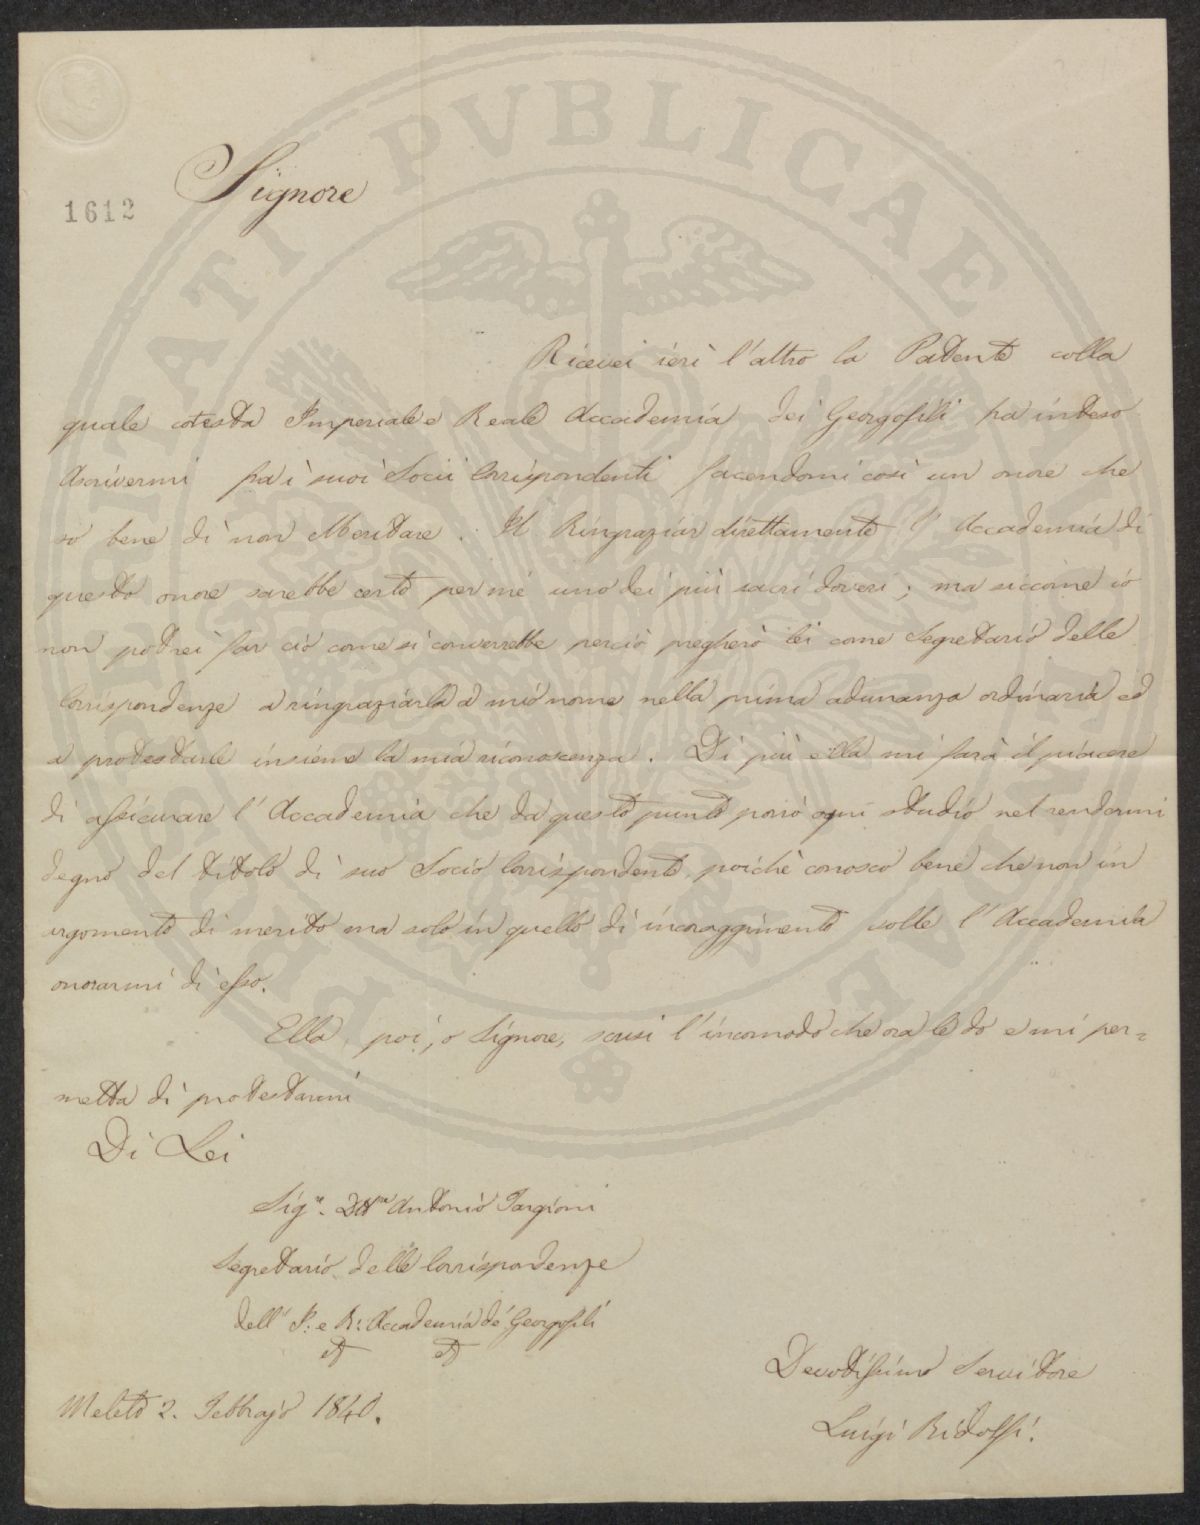 PROSPERITATI PVBLICAE AVGENDAE
1612
Signore
Ricevei ieri l'altro la Patente colla
quale cotesta Imperiale e Reale Accademia dei Georgofili ha inteso
Ascrivermi fra i suoi Socii Corrispondenti facendomi così un onore che
so bene di non Meritare. Il Ringraziar direttamente l'Accademia di
questo onore sarebbe certo per mé uno dei più sacri doveri; ma siccome io
non potrei far ciò come si converrebbe perciò pregherò lei come Segretario delle
Corrispondenze a ringraziarla a mio nome nella prima adunanza ordinaria ed
a protestarle insieme la mia riconoscenza. Di più ella mi farà il piacere
di assicurare l'Accademia che da questo punto porrò ogni studio nel rendermi
degno del titolo di suo Socio Corrispondente, poichè conosco bene che non in
argomento di merito ma solo in quello di incoraggimento volle l'Accademia
onorarmi di esso.
Ella poi, o Signore, scusi l'incomodo che ora le do e mi per=
metta di protestarmi
Di Lei
Sigr. Dttre Antonio Targioni
Segretario delle Corrispondenze
dell' I: e R: Accademia de' Georgofili
Devotissimo Servitore
Meleto 2. Febbrajo 1840.
Luigi Ridolfi.